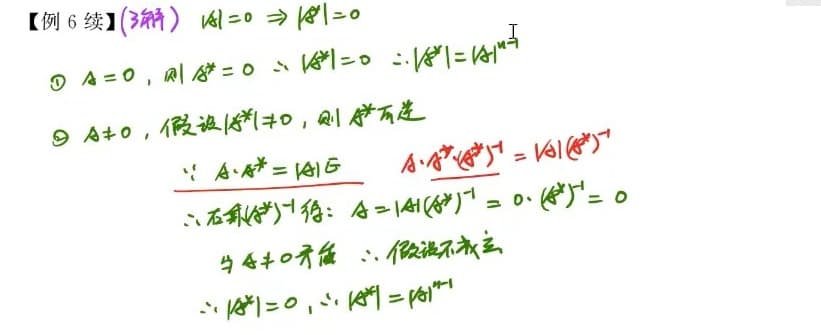 【例 6 续】(了解) |A|=0 ⇒ |A*|=0
① A=0，则 A*=0 ∴ |A*|=0 ∴|A*|=|A|ⁿ⁻¹
② A≠0，假设|A*|≠0，则 A*可逆
∵ A·A*=|A|E A·A*·(A*)⁻¹=|A|(A*)⁻¹
∴右乘(A*)⁻¹得：A=|A|(A*)⁻¹=0·(A*)⁻¹=0
与A≠0矛盾 ∴假设不成立
∴|A*|=0，∴|A*|=|A|ⁿ⁻¹